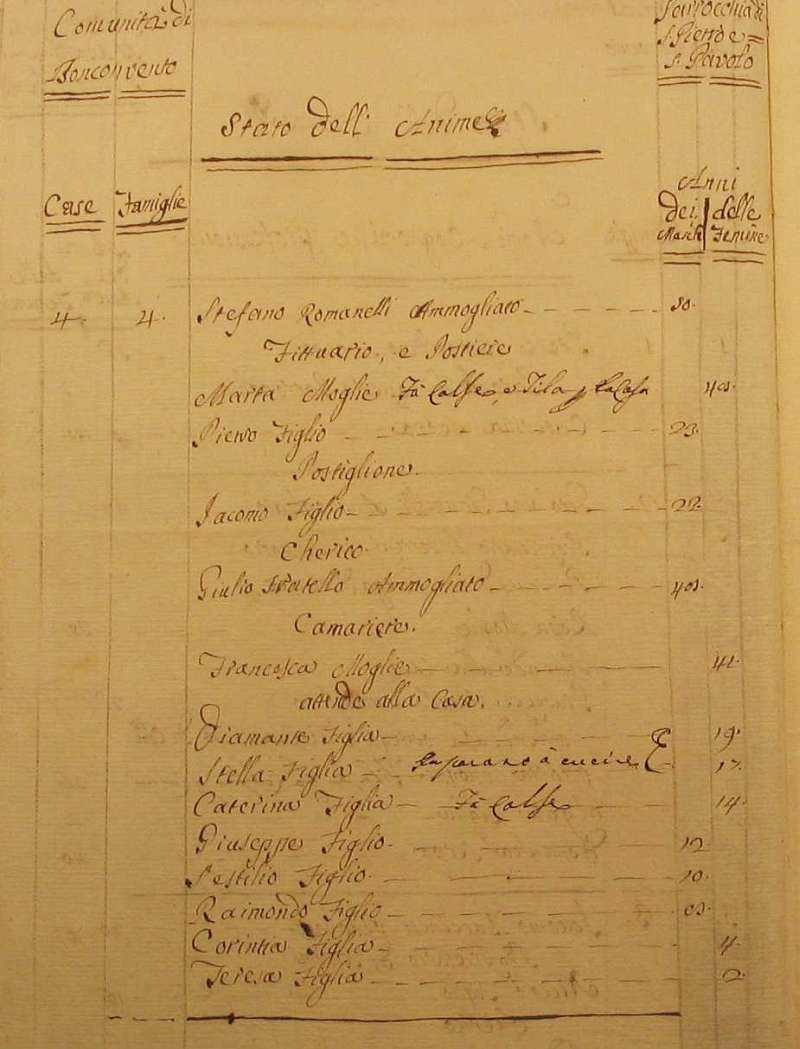 Comunità di
Bonconvento
Parrocchia di
S. Pietro e =
S. Pavolo
Stato dell' Anime
Case
Famiglie
Anni
dei
Maschi
delle
Femine
4. 4. Stefano Romanelli Ammogliato 50.
Fittuario, e Postiere
Marta Moglie Fà Calse, e Fila
Pietro Figlio 23.
Postiglione.
Jacomo Figlio 22
Cherico.
Giulio Fratello Ammogliato
Camariere.
Francesca Moglie
attende alla Casa.
Diamante Figlia 19.
Stella Figlia à cucire 17
Caterina Figlia Fà Calse 14
Giuseppe Figlio 12
Figlio 10.
Raimondo Figlio
Corintia Figlia 4.
Teresa Figlia 2